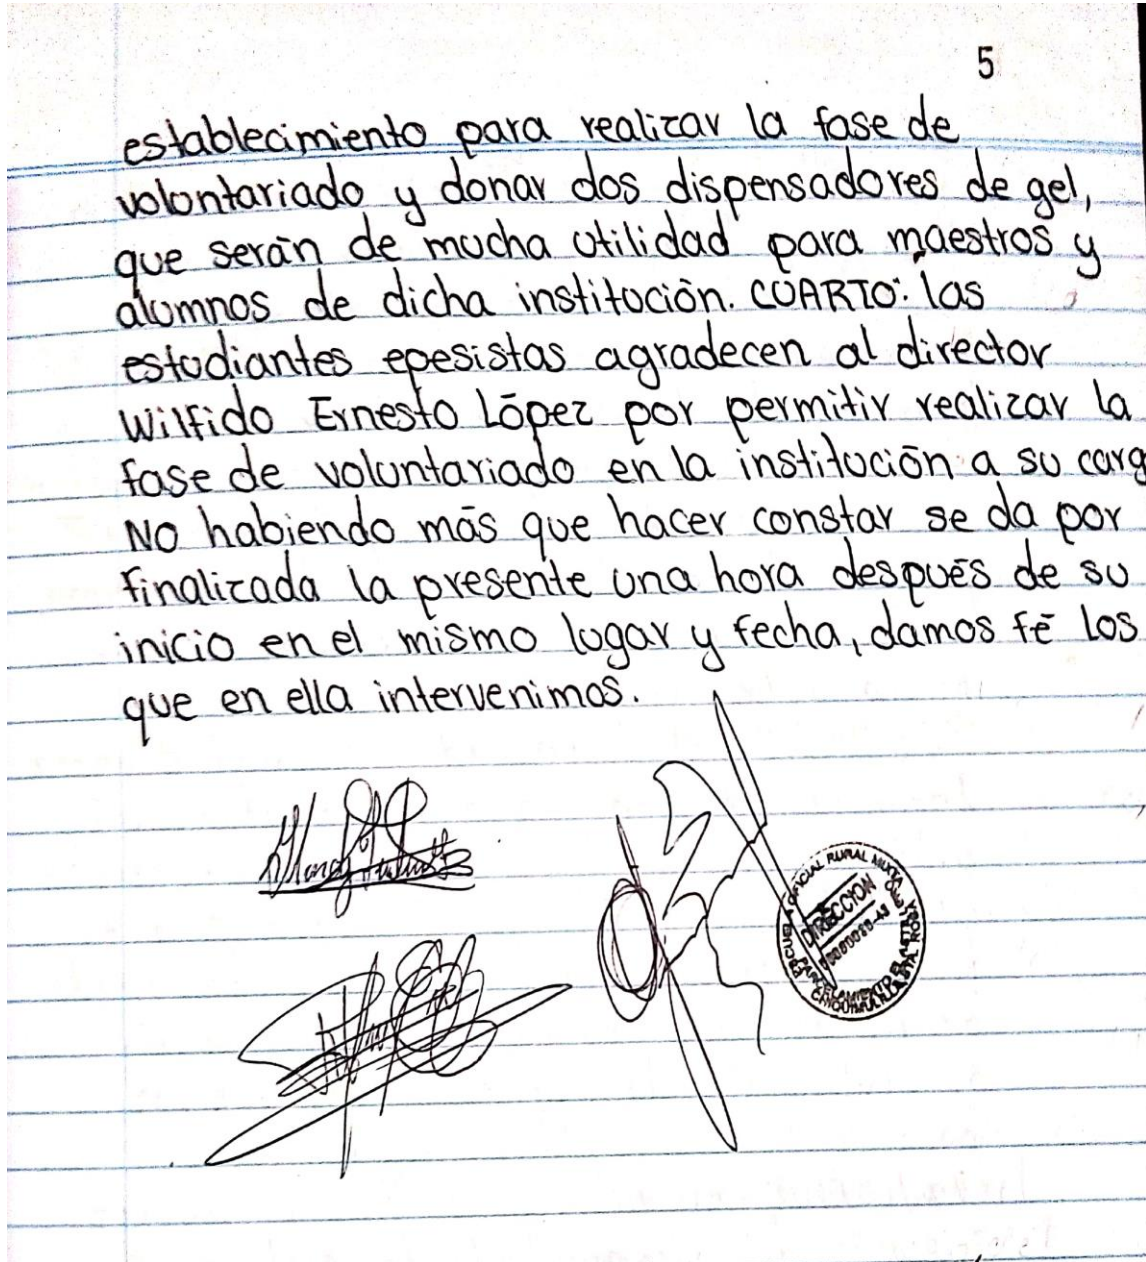 5
establecimiento para realizar la fase de
voluntariado y donar dos dispensadores de gel,
que serán de mucha utilidad para maestros y
alumnos de dicha institución. CUARTO: las
estudiantes epesistas agradecen al director
Wilfido Ernesto López por permitir realizar la
fase de voluntariado en la institución a su carg
No habiendo más que hacer constar se da por
finalizada la presente una hora después de su
inicio en el mismo lugar y fecha, damos fé los
que en ella intervenimos.
ESCUELA OFICIAL RURAL MIXTA
DIRECCION
PARCELAMIENTO EL
CHIQUIMULILLA, STA. ROSA